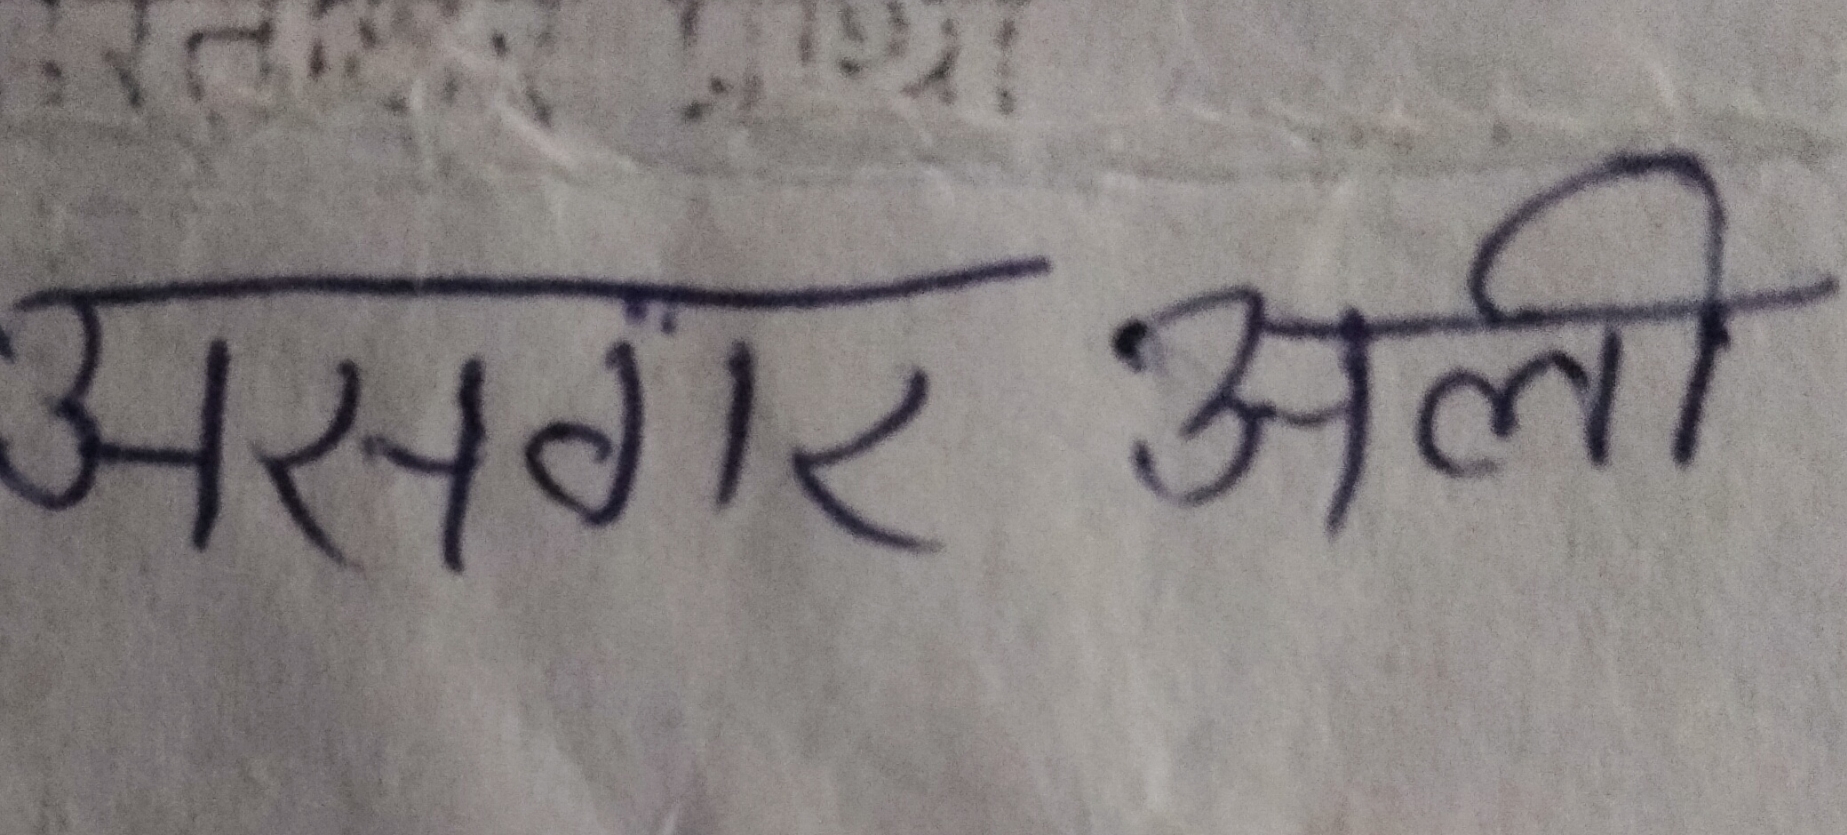 असगर अली